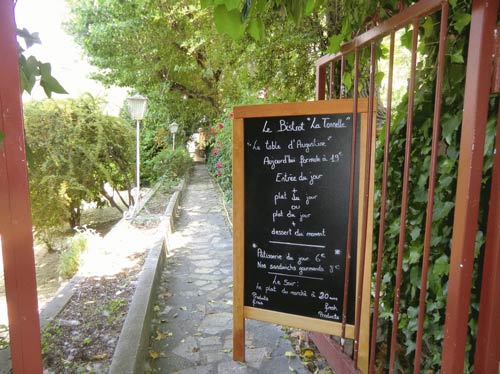 Le Bistrot "La Tonnelle"
"La table d'Augustine"
Aujourd'hui formule à 19€
Entrée du jour
+
plat du jour
ou
plat du jour
+
dessert du moment
* Patisserie du jour 6€
Nos sandwichs gourmands 8€
Le Soir:
Le plat du marché à 20 euros
Produits frais
fresh Products